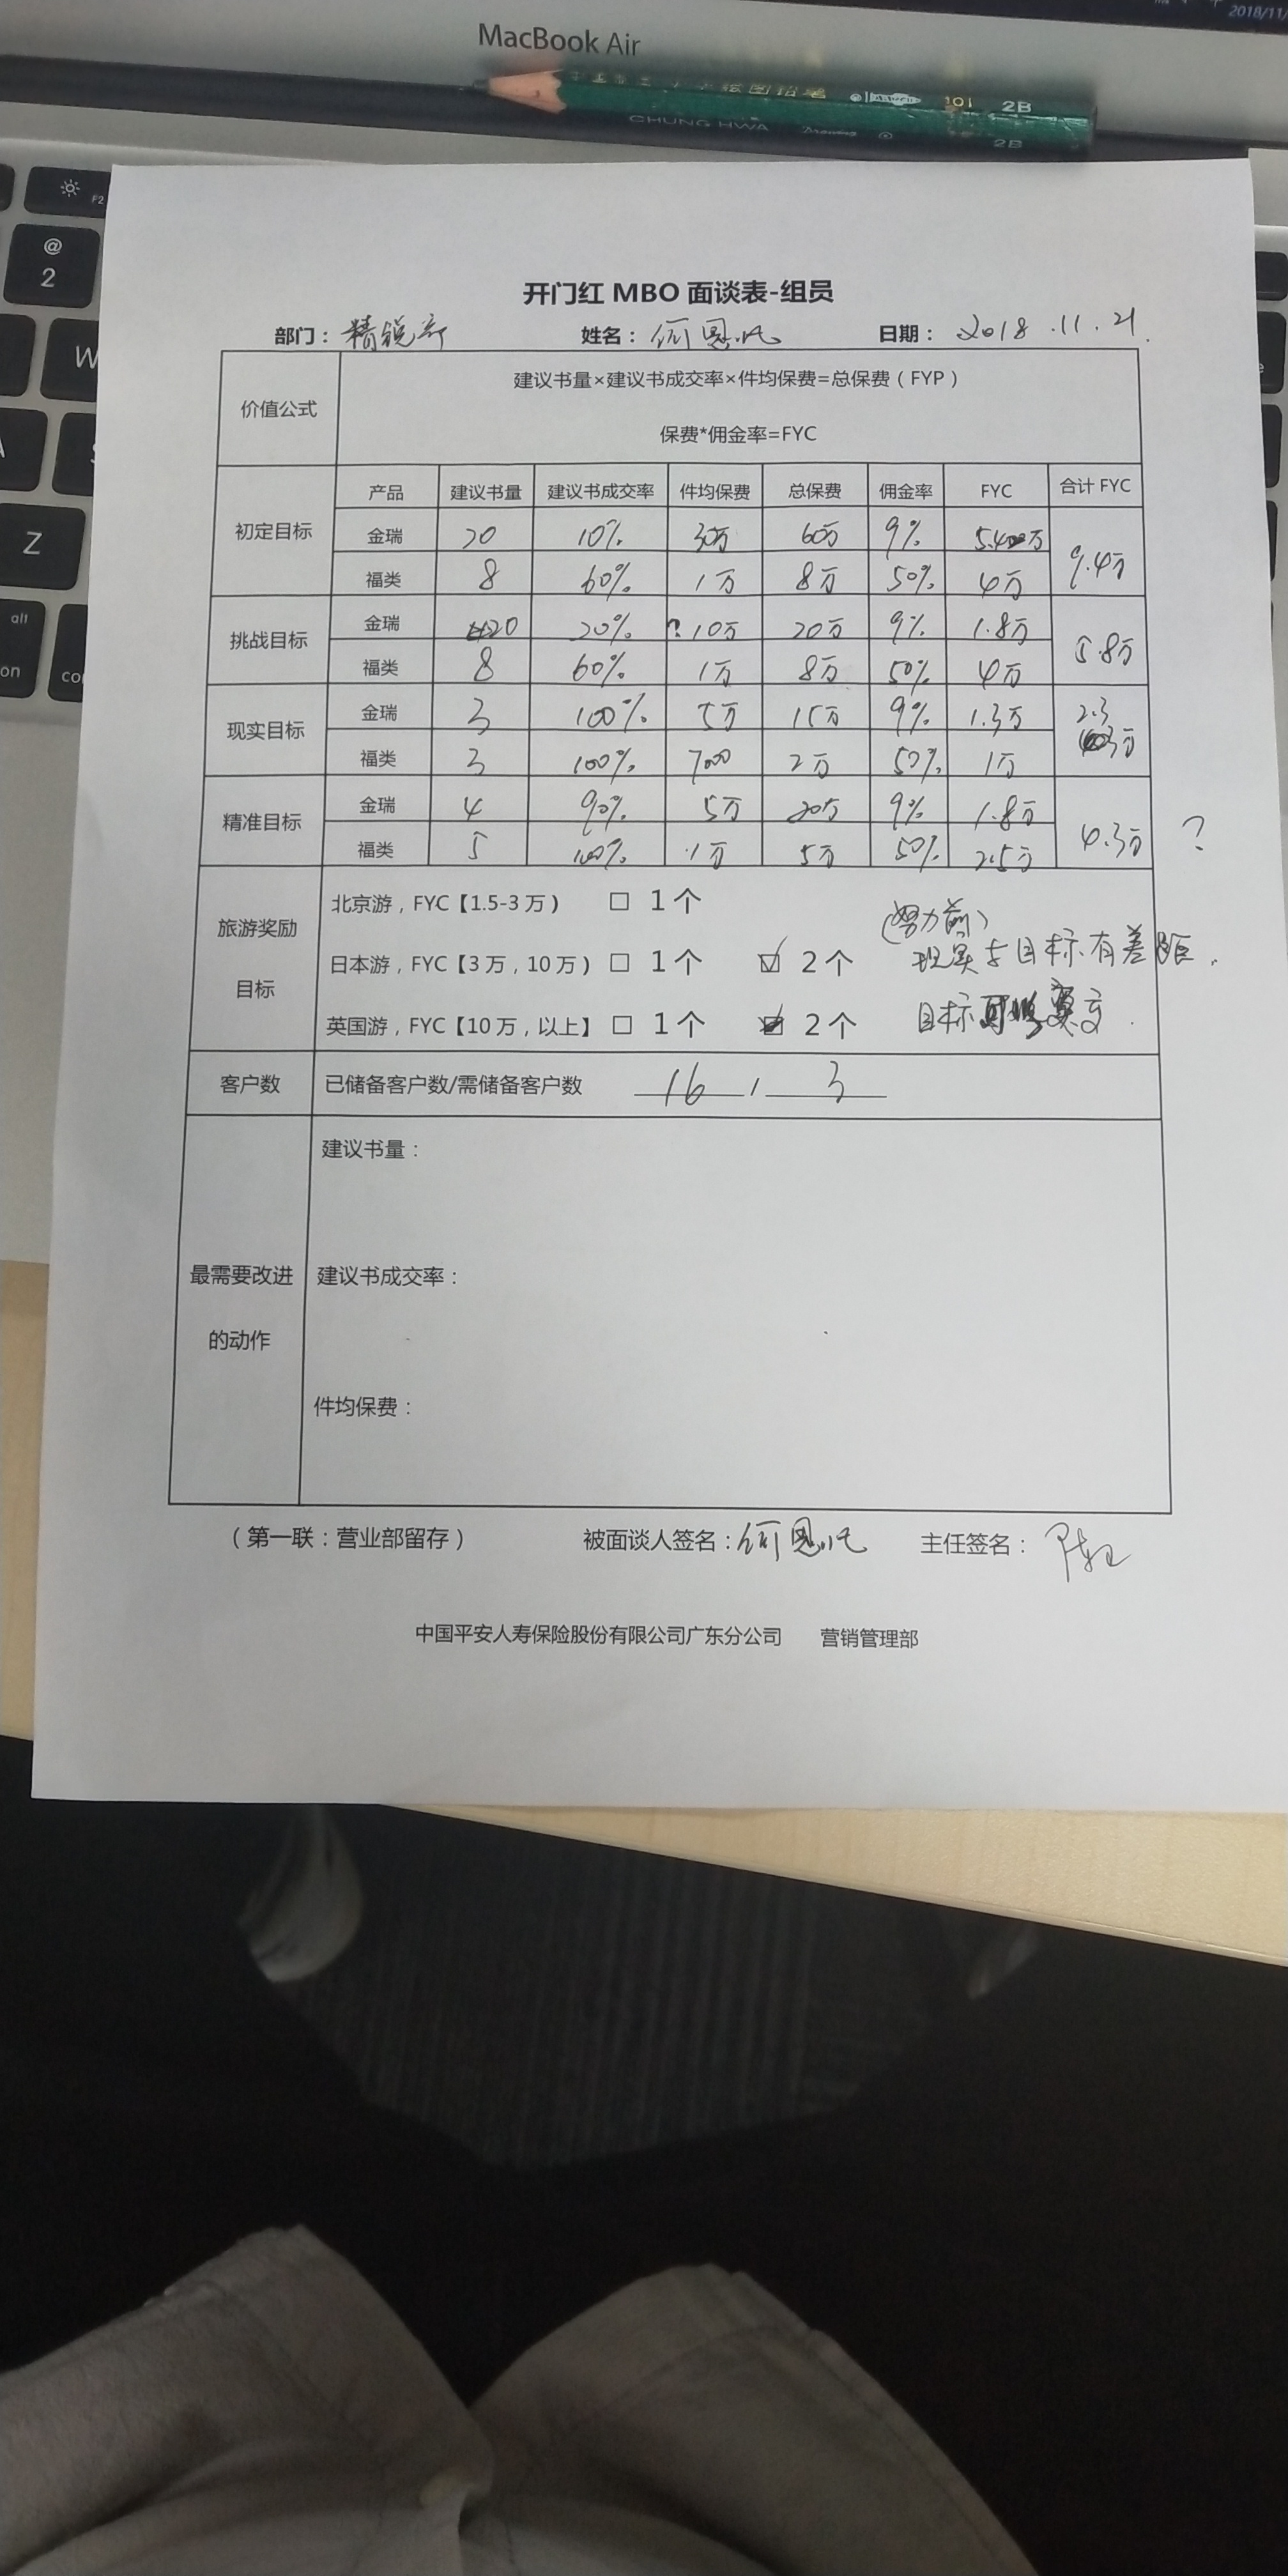 2018/11/
MacBook Air
中国 绘图铅笔 101 2B
CHUNG HWA Drawing 2B
F2
@
2
W
A
S
Z
alt
开门红 MBO 面谈表-组员
部门：精锐部 姓名：何恩 日期：2018.11.21.
价值公式
建议书量×建议书成交率×件均保费=总保费（FYP）
保费*佣金率=FYC
初定目标
产品 建议书量 建议书成交率 件均保费 总保费 佣金率 FYC 合计 FYC
金瑞 20 10% 30万 60万 9% 5.4万
福类 8 60% 1万 8万 50% 4万
9.4万
挑战目标
金瑞 20 20% ? 10万 20万 9% 1.8万
福类 8 60% 1万 8万 50% 4万
5.8万
现实目标
金瑞 3 100% 5万 15万 9% 1.3万
福类 3 100% 7000 2万 50% 1万
2.3
万
精准目标
金瑞 4 90% 5万 20万 9% 1.8万
福类 5 100% 1万 5万 50% 2.5万
4.3万 ?
旅游奖励
目标
北京游，FYC【1.5-3 万） □ 1 个
(努力前)
日本游，FYC【3 万，10 万） □ 1 个 ☑ 2 个 现实与目标有差距.
英国游，FYC【10 万，以上】 □ 1 个 2 个 目标
客户数 已储备客户数/需储备客户数 16 / 3
最需要改进
的动作
建议书量：
建议书成交率：
件均保费：
（第一联：营业部留存） 被面谈人签名：何恩 主任签名：
中国平安人寿保险股份有限公司广东分公司 营销管理部